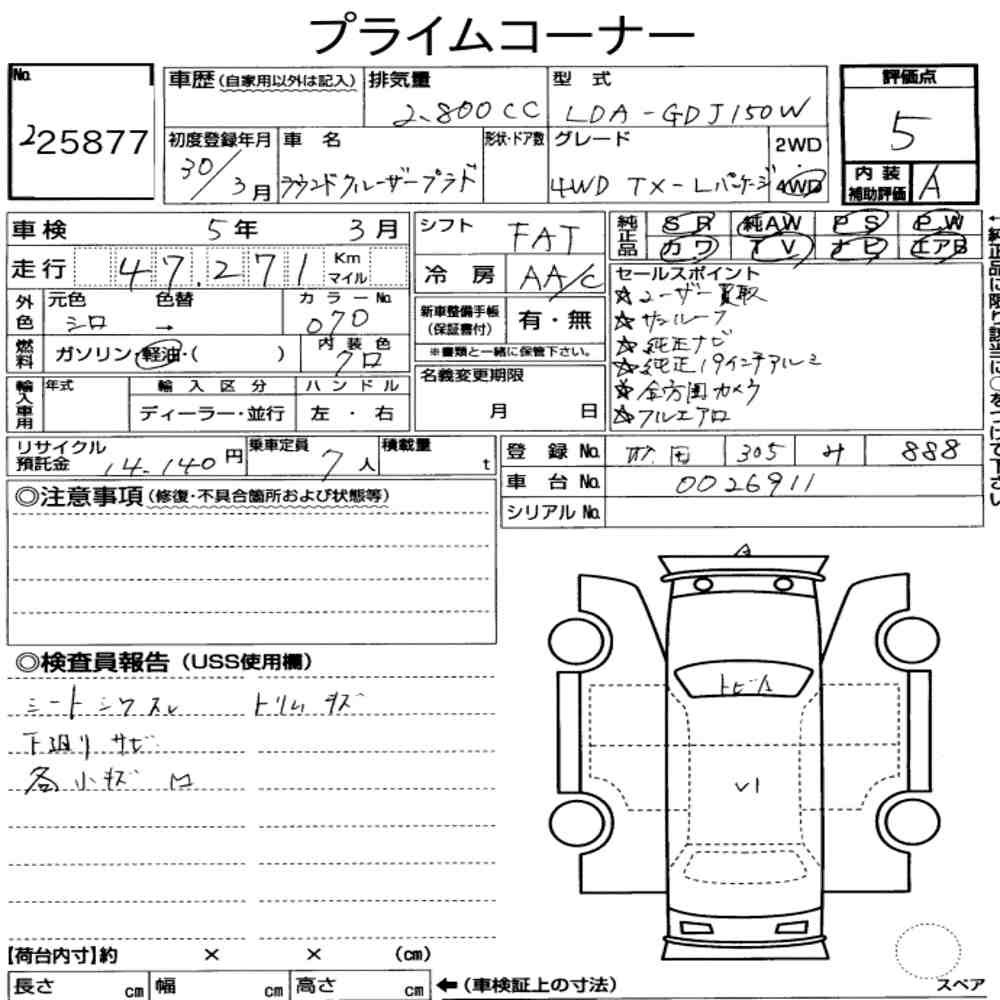 プライムコーナー
No. 225877
車歴(自家用以外は記入) 排気量 2.800CC 型式 LDA-GDJ150W
評価点 5
初度登録年月 30/3月 車名 ランドクルーザープラド 形状・ドア数 グレード 4WD TX-Lパッケージ 2WD・4WD
内装補助評価 A
車検 5年 3月
シフト FAT
純正品 SR 純AW PS PW
カワ TV ナビ エアB
走行 47,271 Km マイル
冷房 AA/C
外色 元色 シロ 色替 → カラーNo. 070
新車整備手帳(保証書付) 有・無
※書類と一緒に保管下さい。
燃料 ガソリン・軽油・( ) 内装色 クロ
セールスポイント
☆ユーザー買取
☆サンルーフ
☆純正ナビ
☆純正19インチアルミ
☆全方囲カメラ
☆フルエアロ
←純正品に限り該当に○をつけて下さい
輸入車用 年式 輸入区分 ディーラー・並行 ハンドル 左・右
名義変更期限 月 日
リサイクル預託金 14.140円 乗車定員 7人 積載量 t
登録No. 305 み 888
車台No. 0026911
シリアルNo.
◎注意事項(修復・不具合箇所および状態等)
◎検査員報告(USS使用欄)
シートシワスレ トリムキズ
下廻りサビ
各小キズ
A
トビA
【荷台内寸】約 × × (cm)
長さ cm 幅 cm 高さ cm ←(車検証上の寸法)
スペア